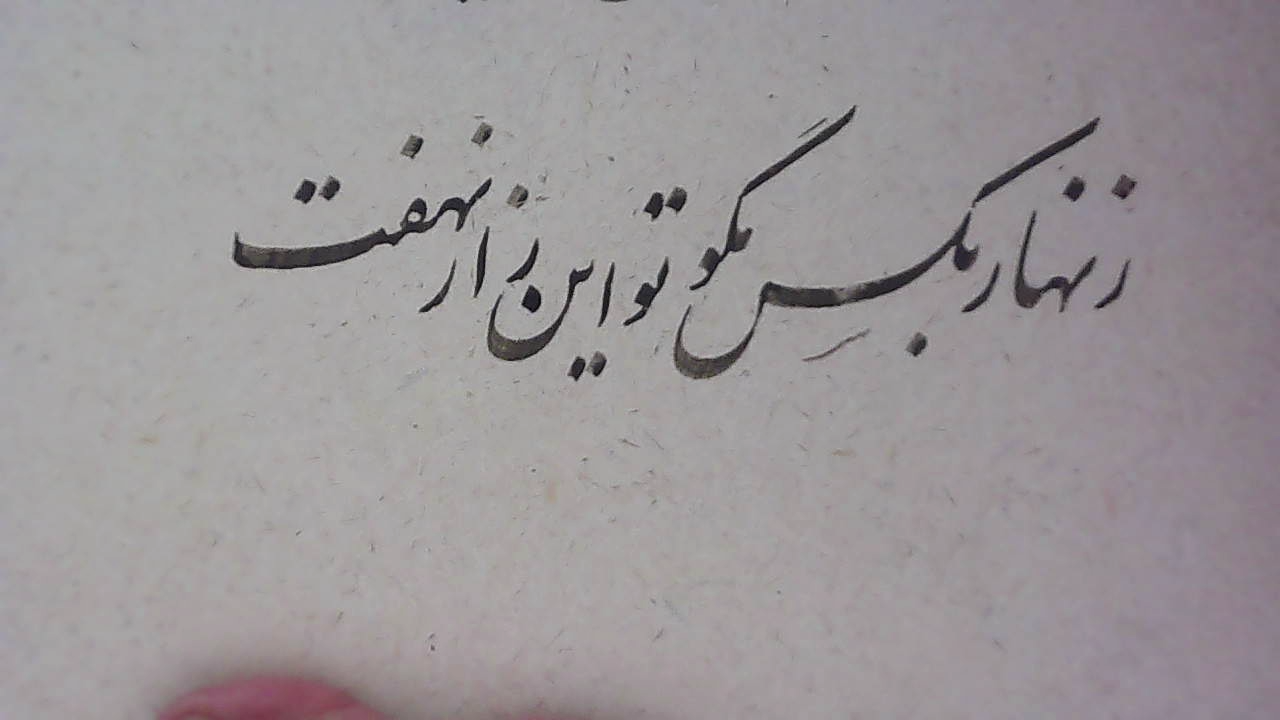 زنهار بکس مگو تو این راز نهفت